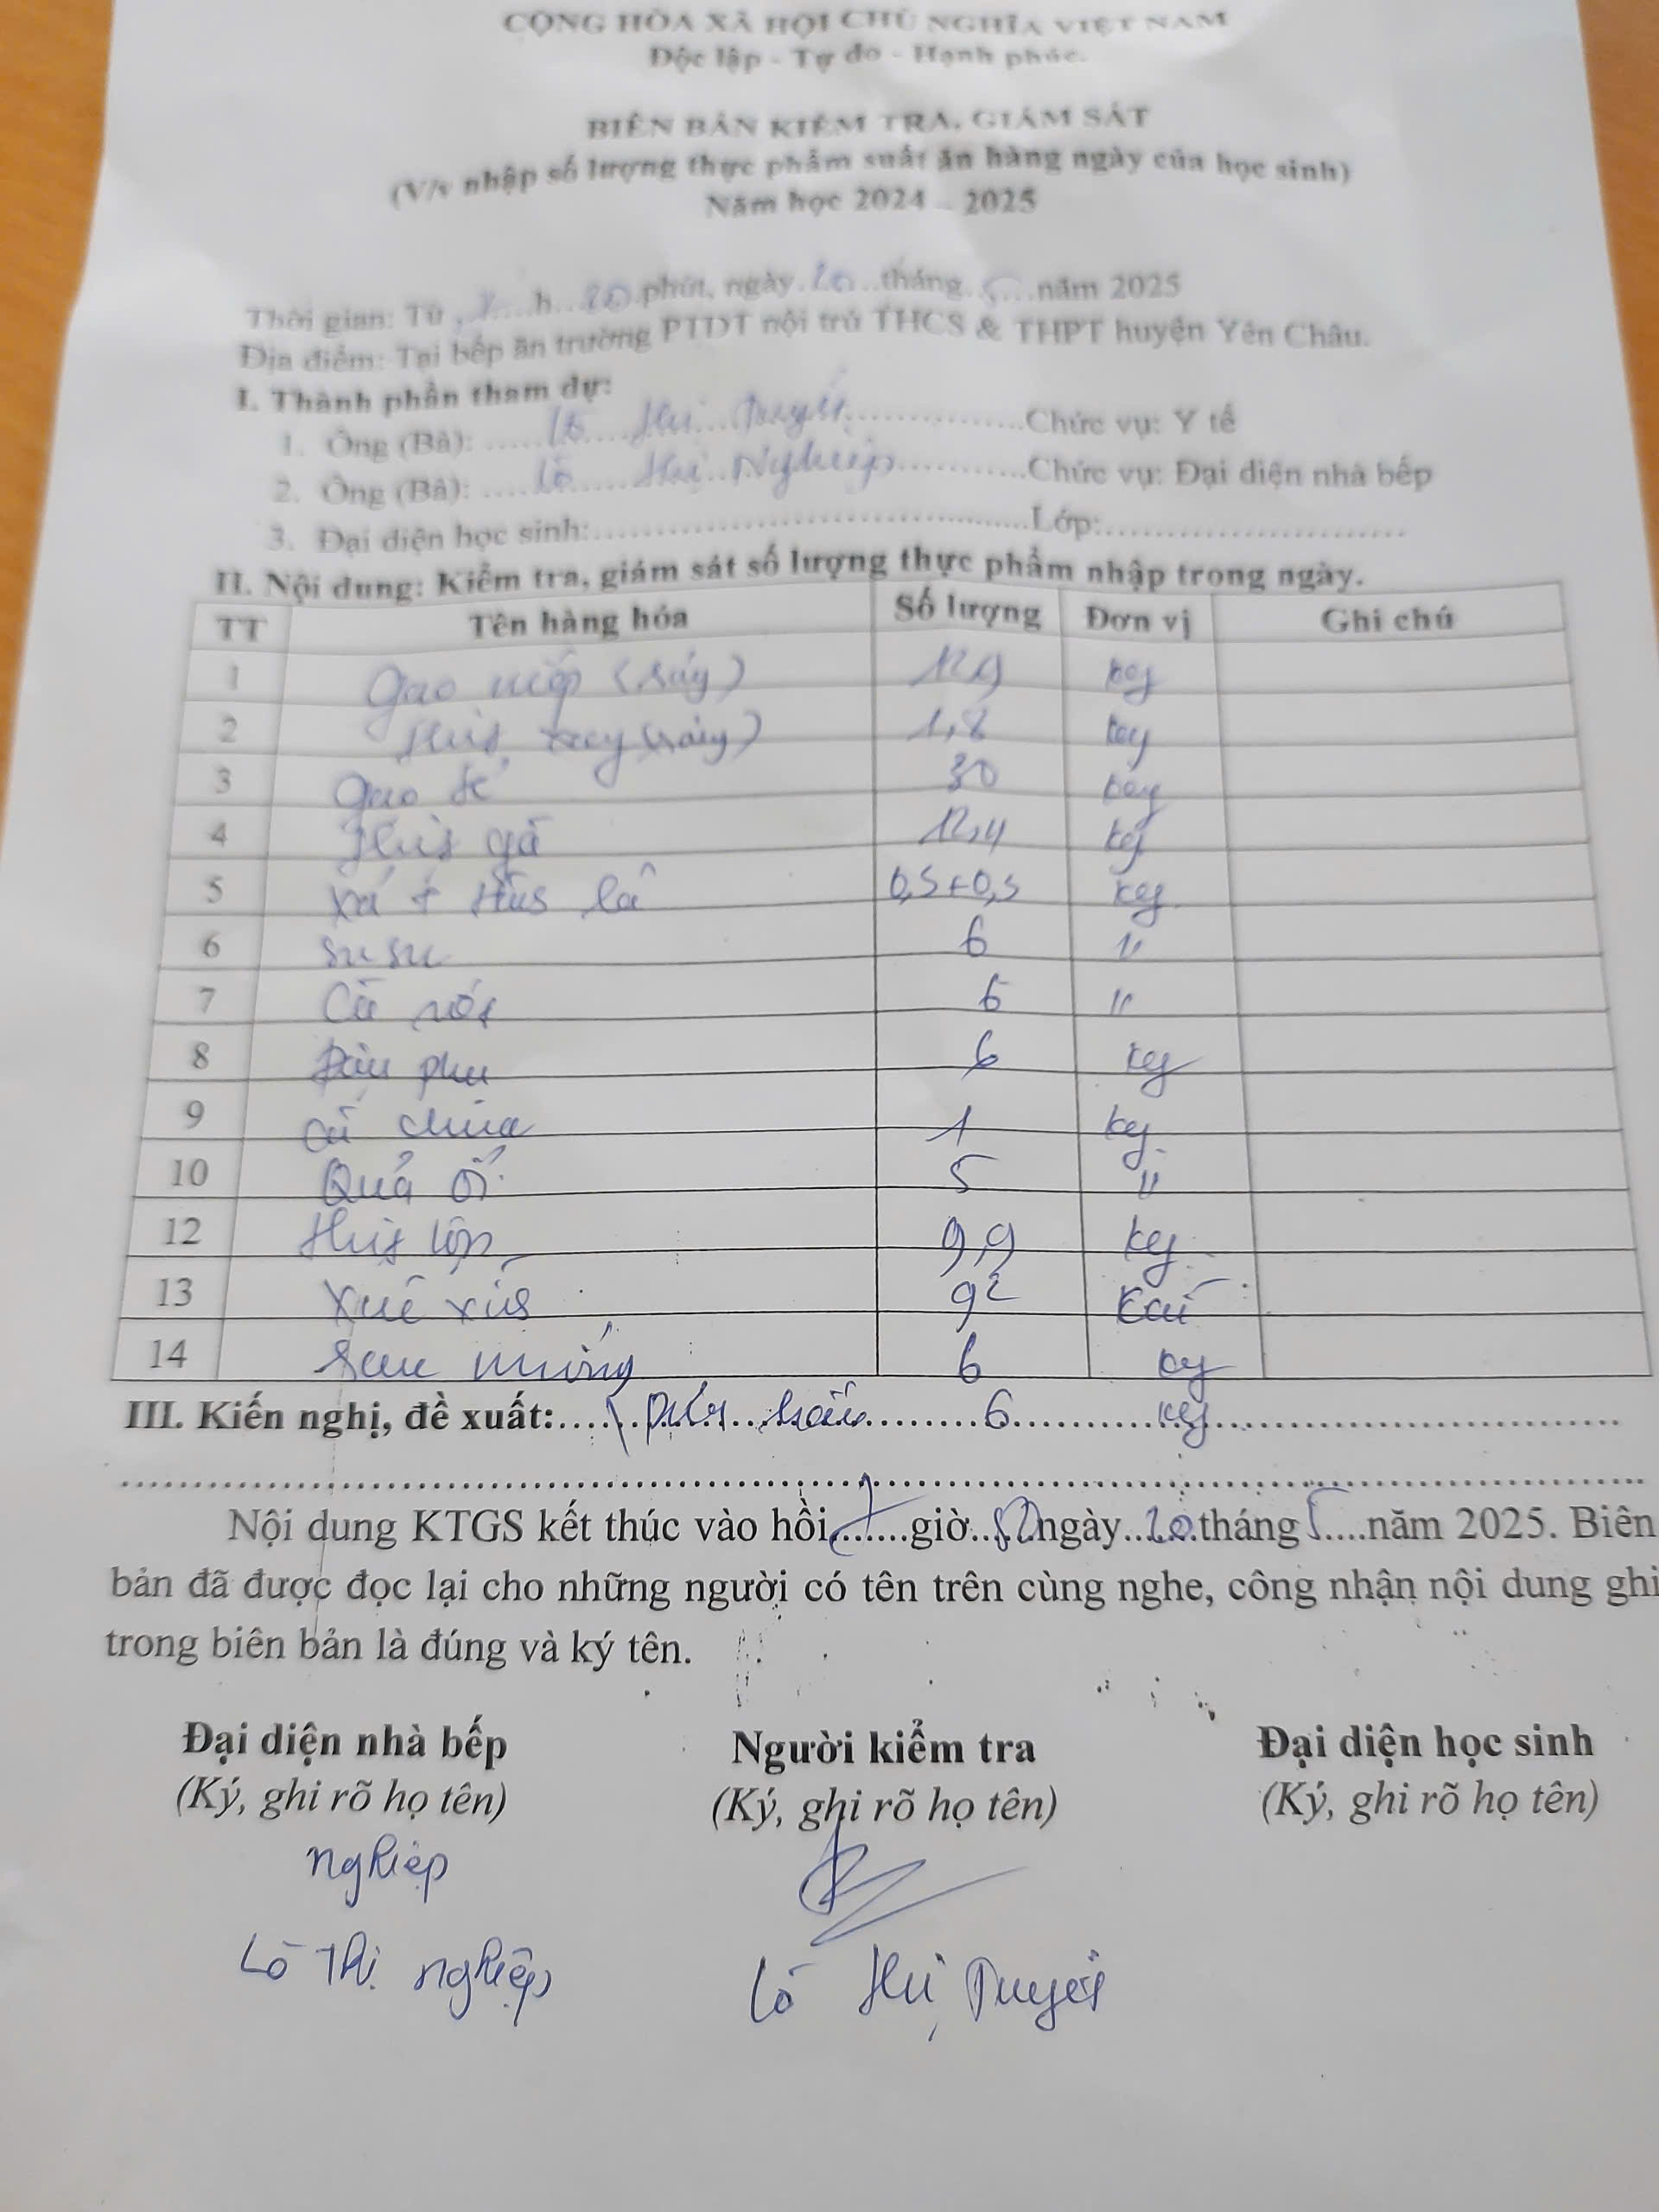 CỘNG HÒA XÃ HỘI CHỦ NGHĨA VIỆT NAM
Độc lập - Tự do - Hạnh phúc.
BIÊN BẢN KIỂM TRA, GIÁM SÁT
(V/v nhập số lượng thực phẩm suất ăn hàng ngày của học sinh)
Năm học 2024 - 2025
Thời gian: Từ ......h... phút, ngày 20 tháng 5 năm 2025
Địa điểm: Tại bếp ăn trường PTDT nội trú THCS & THPT huyện Yên Châu.
I. Thành phần tham dự:
1. Ông (Bà): Lò Thị Tuyết Chức vụ: Y tế
2. Ông (Bà): Lò Thị Nghiệp Chức vụ: Đại diện nhà bếp
3. Đại diện học sinh: Lớp:
II. Nội dung: Kiểm tra, giám sát số lượng thực phẩm nhập trong ngày.
TT Tên hàng hóa Số lượng Đơn vị Ghi chú
1 gạo nếp (sáng) kg
2 Thịt xay (sáng) 1,8 kg
3 gạo tẻ 30 kg
4 Thịt gà 12,4 kg
5 Xả + Thìs lá 0,5+0,5 kg
6 su su 6 "
7 Cà rốt 6 "
8 Đậu phụ 6 kg
9 cà chua 1 kg
10 Quả ổi 5 "
12 Thịt lợn 9,9 kg
13 Xúc xích 92 Cái
14 Rau muống 6 kg
III. Kiến nghị, đề xuất: 6 kg
Nội dung KTGS kết thúc vào hồi 7 giờ ngày 20 tháng 5 năm 2025. Biên
bản đã được đọc lại cho những người có tên trên cùng nghe, công nhận nội dung ghi
trong biên bản là đúng và ký tên.
Đại diện nhà bếp Người kiểm tra Đại diện học sinh
(Ký, ghi rõ họ tên) (Ký, ghi rõ họ tên) (Ký, ghi rõ họ tên)
Nghiệp
Lò Thị Nghiệp Lò Thị Tuyết